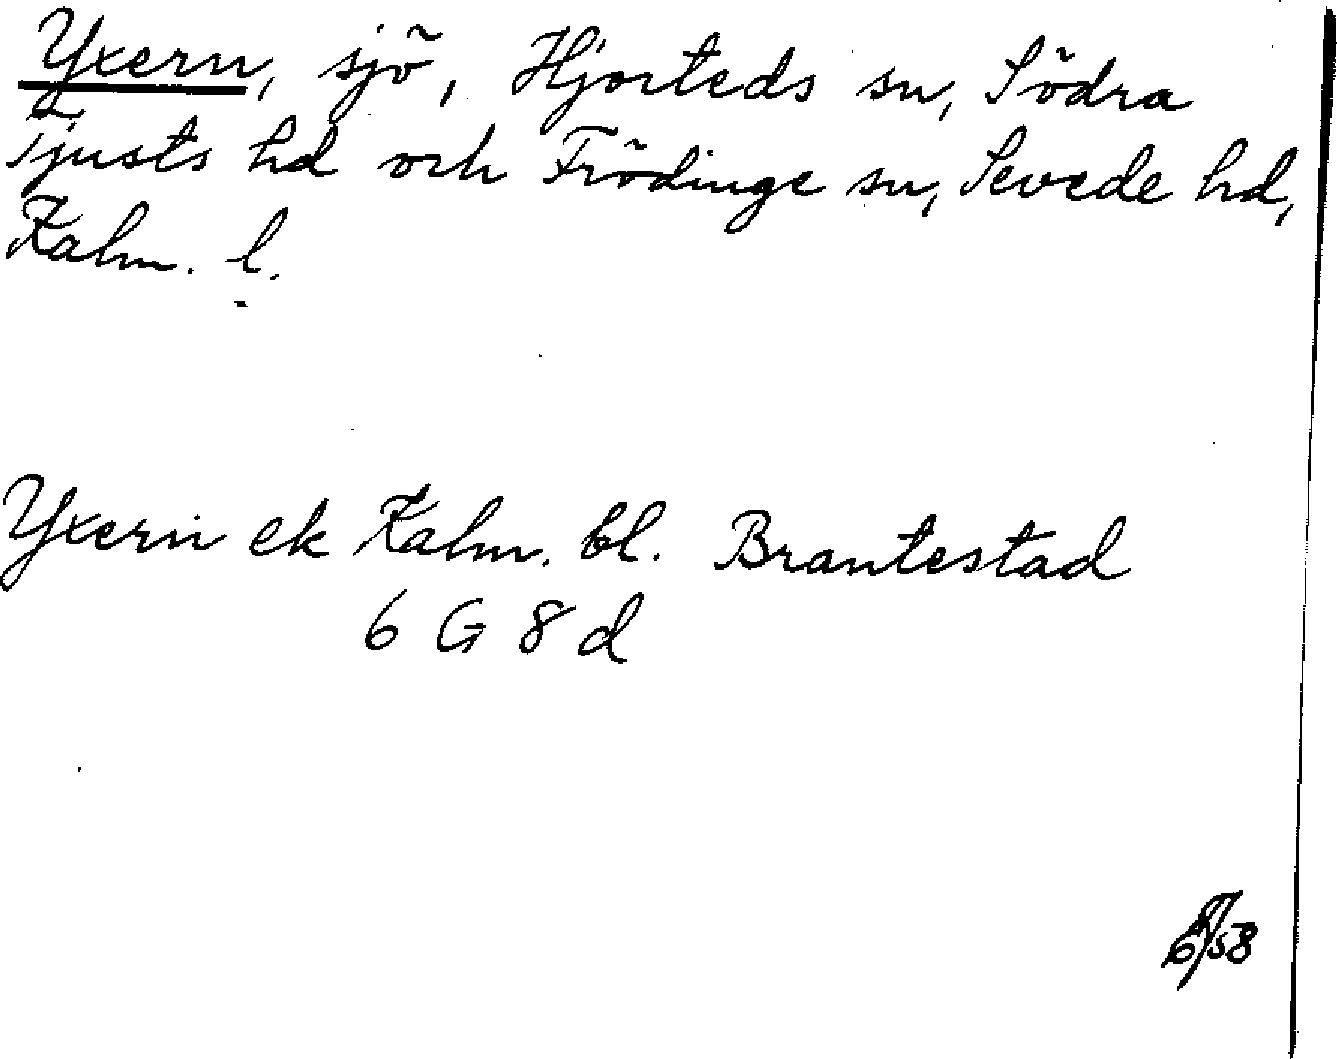 Yxern, sjö, Hjorteds sn, Södra
Tjusts hd och Frödinge sn, Sevede hd,
Kalm. l.
Yxern ek Kalm. bl. Brantestad
6 G 8 d